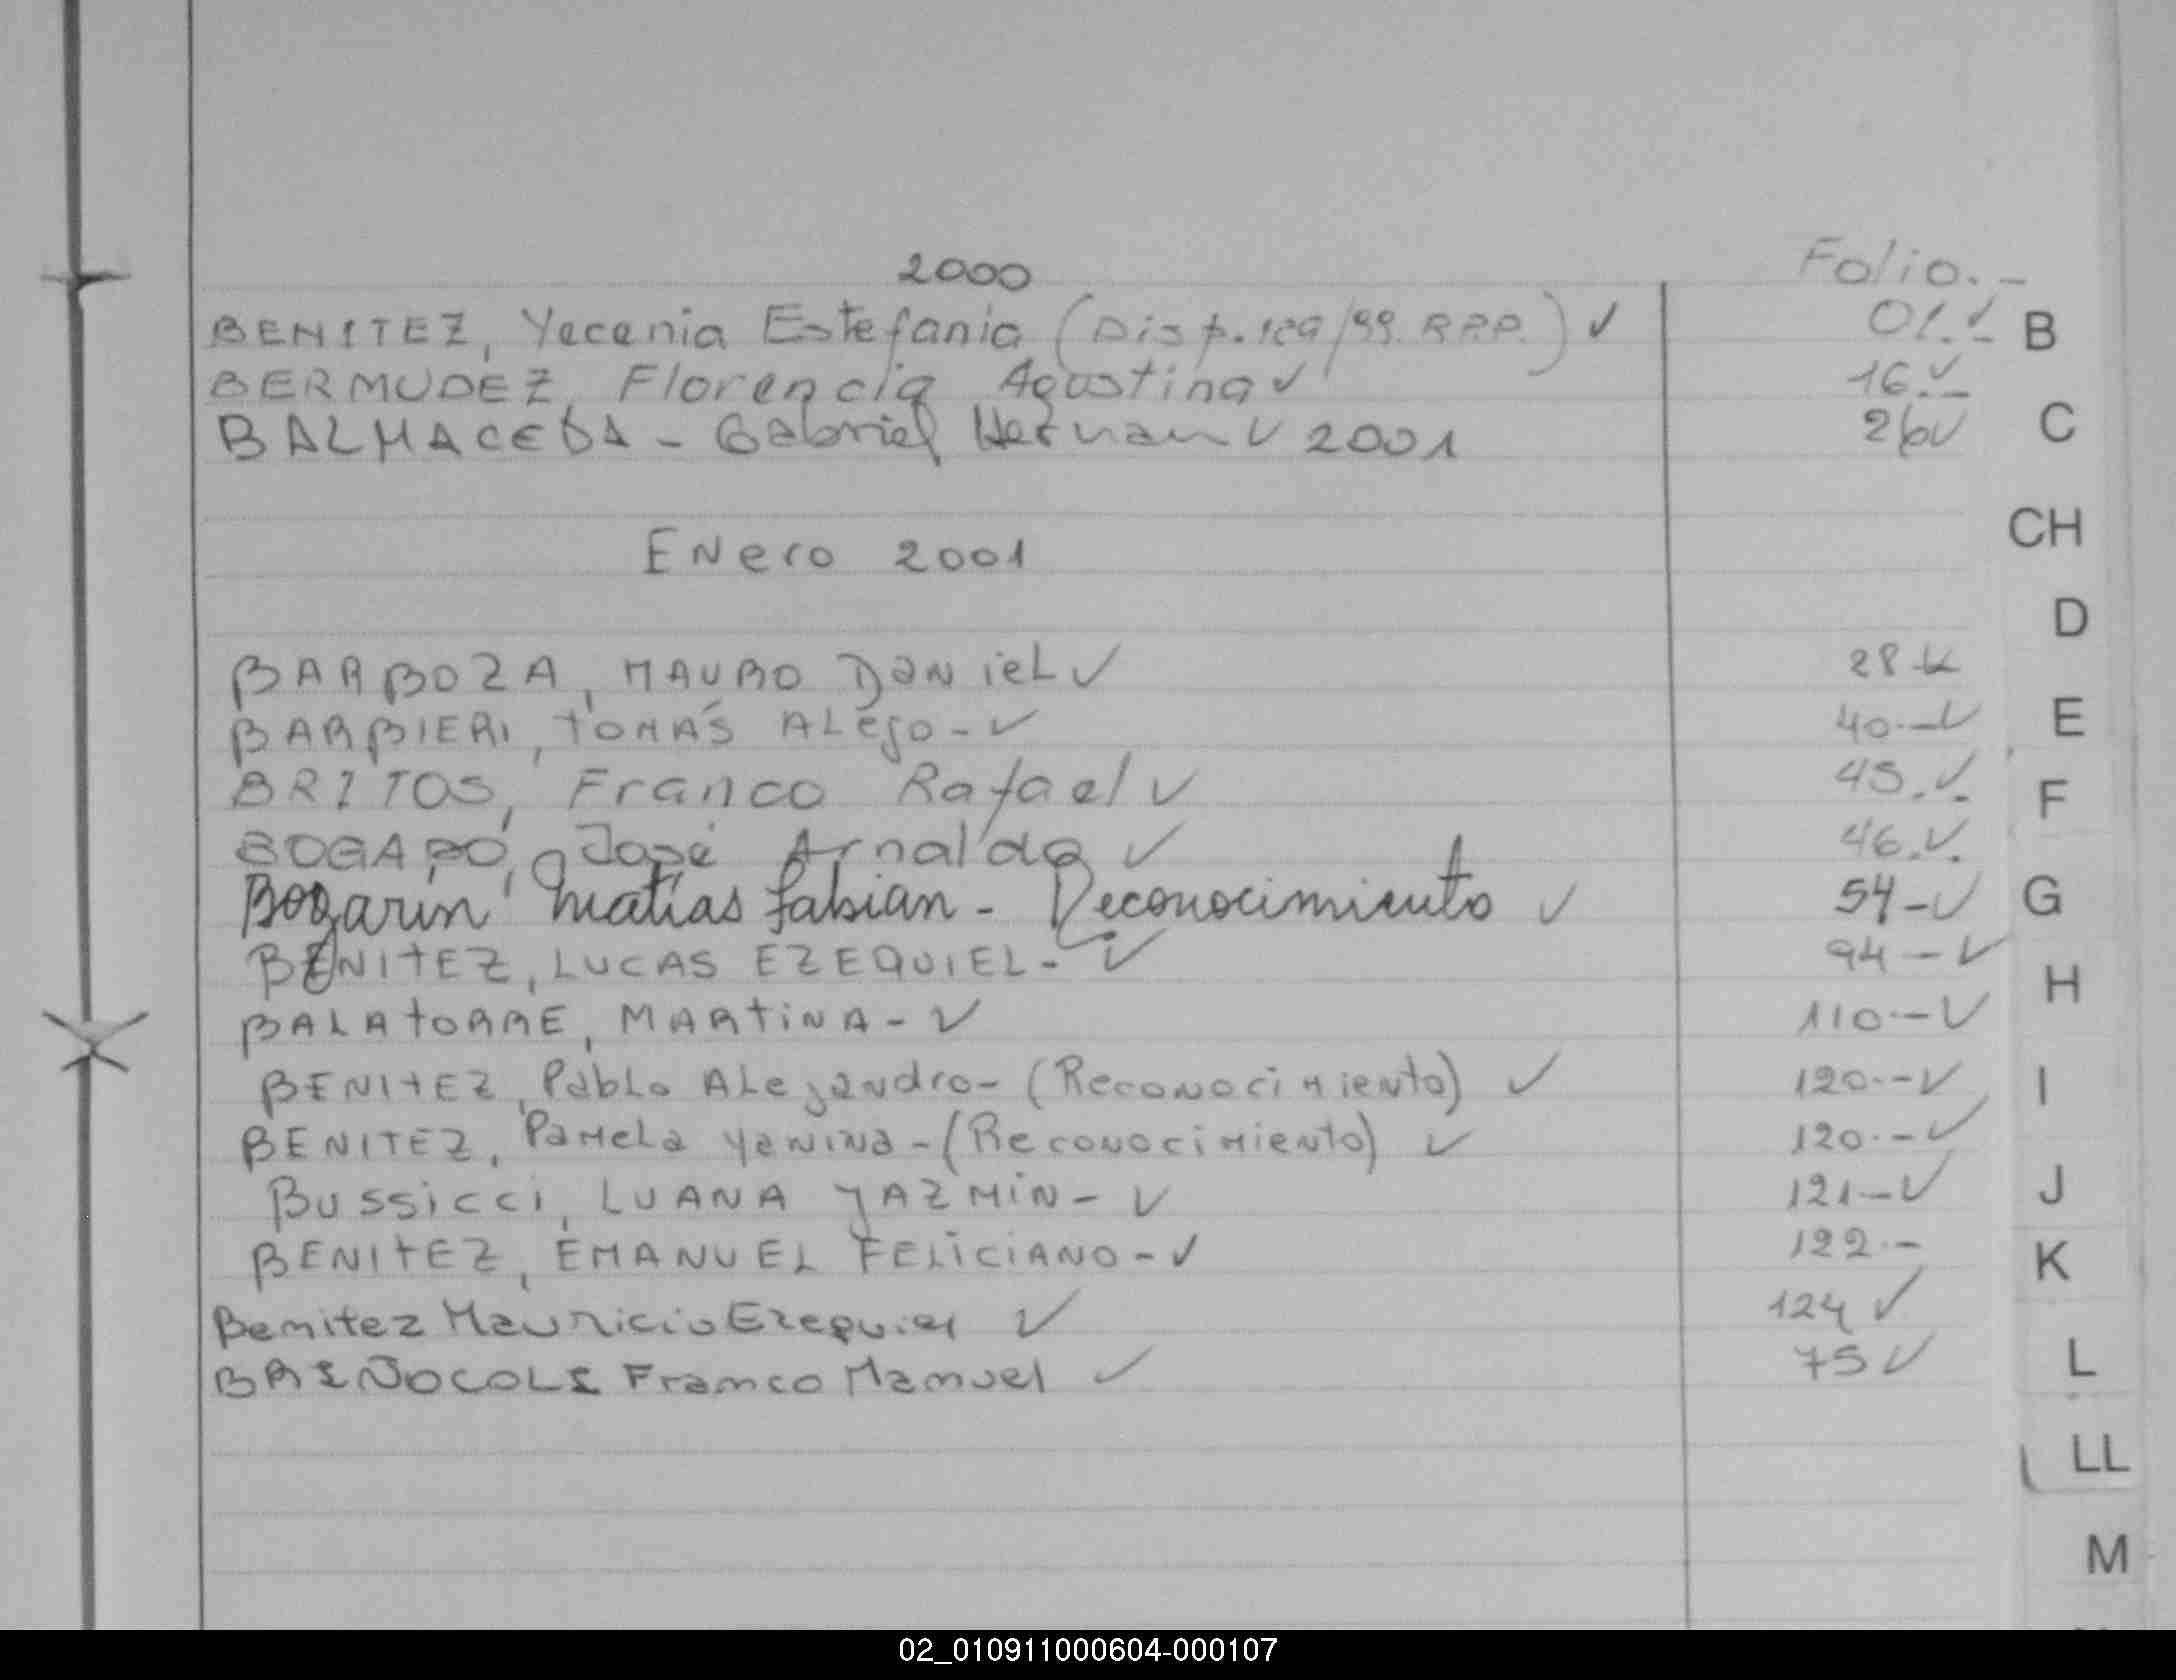 2000 Folio.-
BENITEZ, Yecenia Estefania (Disp. 129/99. RPP.) ✓ 01.✓- B
BERMUDEZ, Florencia Agustina ✓ 16.✓-
BALMACEDA - Gabriel Hernan ✓ 2001 26✓ C
CH
Enero 2001
D
BARBOZA, MAURO DANieL ✓ 28-✓
BARBIERI, TOMÁS ALEJO-✓ 40.-✓ E
BRITOS, Franco Rafael ✓ 45.✓. F
BOGADO, José Arnaldo ✓ 46.✓.
Bogarín Matías fabian - Reconocimiento ✓ 54-✓ G
BENITEZ, LUCAS EZEQUIEL-✓ 94-✓
H
BALATORRE, MARTINA-✓ 110.-✓
BENITEZ, PabLo ALejandro- (Reconocimiento) ✓ 120.-✓ I
BENITEZ, PaMeLa YaNiNa-(Reconocimiento) ✓ 120.-✓
BUSSicci, LUANA YAZMÍN-✓ 121-✓ J
BENITEZ, EMANUEL FELiCiANO-✓ 122.- K
Benitez Mauricio Ezequiel ✓ 124 ✓
Franco Manuel ✓ 75✓ L
LL
M
02_010911000604-000107